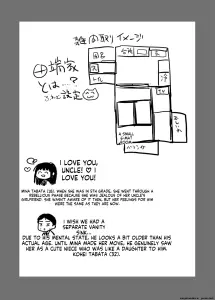 雑間取りイメージ
田端家
とは…?
ふわっと設定
A SMALL
FIRST
FLOOR
ベランダ
I LOVE YOU,
UNCLE! ♡ I
LOVE YOU!
MINA TABATA (16). WHEN SHE WAS IN 5TH GRADE, SHE WENT THROUGH A
REBELLIOUS PHASE BECAUSE SHE WAS JEALOUS OF HER UNCLE'S
GIRLFRIEND. SHE WASN'T AWARE OF IT THEN, BUT HER FEELINGS FOR HIM
WERE THE SAME AS THEY ARE NOW.
I WISH WE HAD A
SEPARATE VANITY
SINK...
DUE TO HIS MENTAL STATE, HE LOOKS A BIT OLDER THAN HIS
ACTUAL AGE. UNTIL MINA MADE HER MOVE, HE GENUINELY SAW
HER AS A CUTE NIECE WHO WAS LIKE A DAUGHTER TO HIM.
KOHEI TABATA (32).